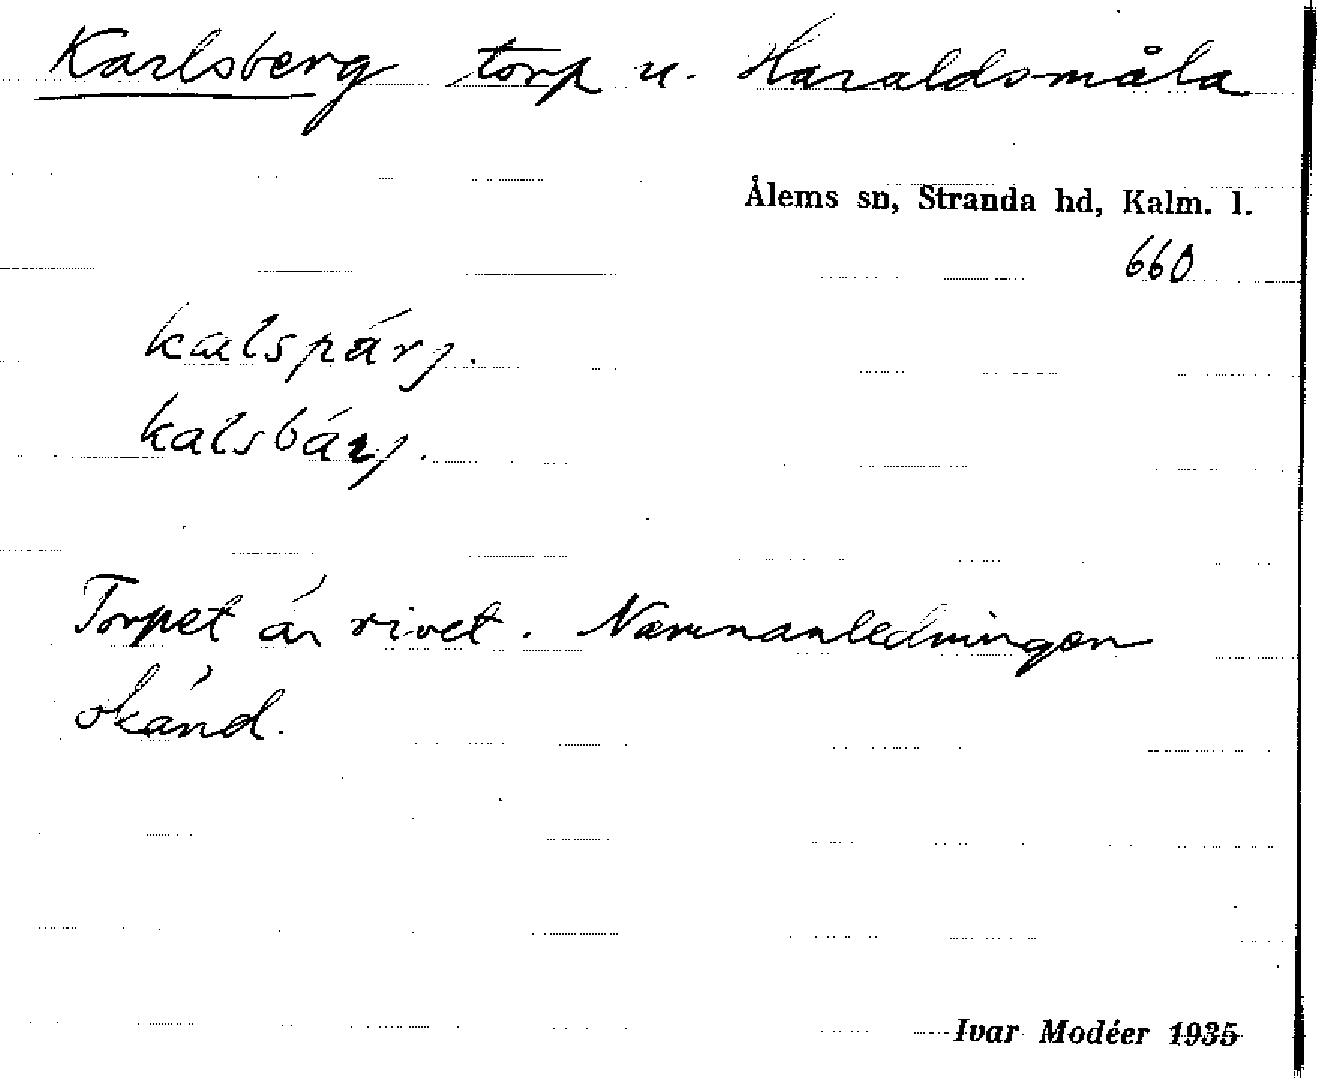 Karlsberg torp u. Haraldsmåla
Ålems sn, Stranda hd, Kalm. l.
660
kalspárj.
kalsbárj.
Torpet är rivet. Namnanledningen
okänd.
Ivar Modéer 1935